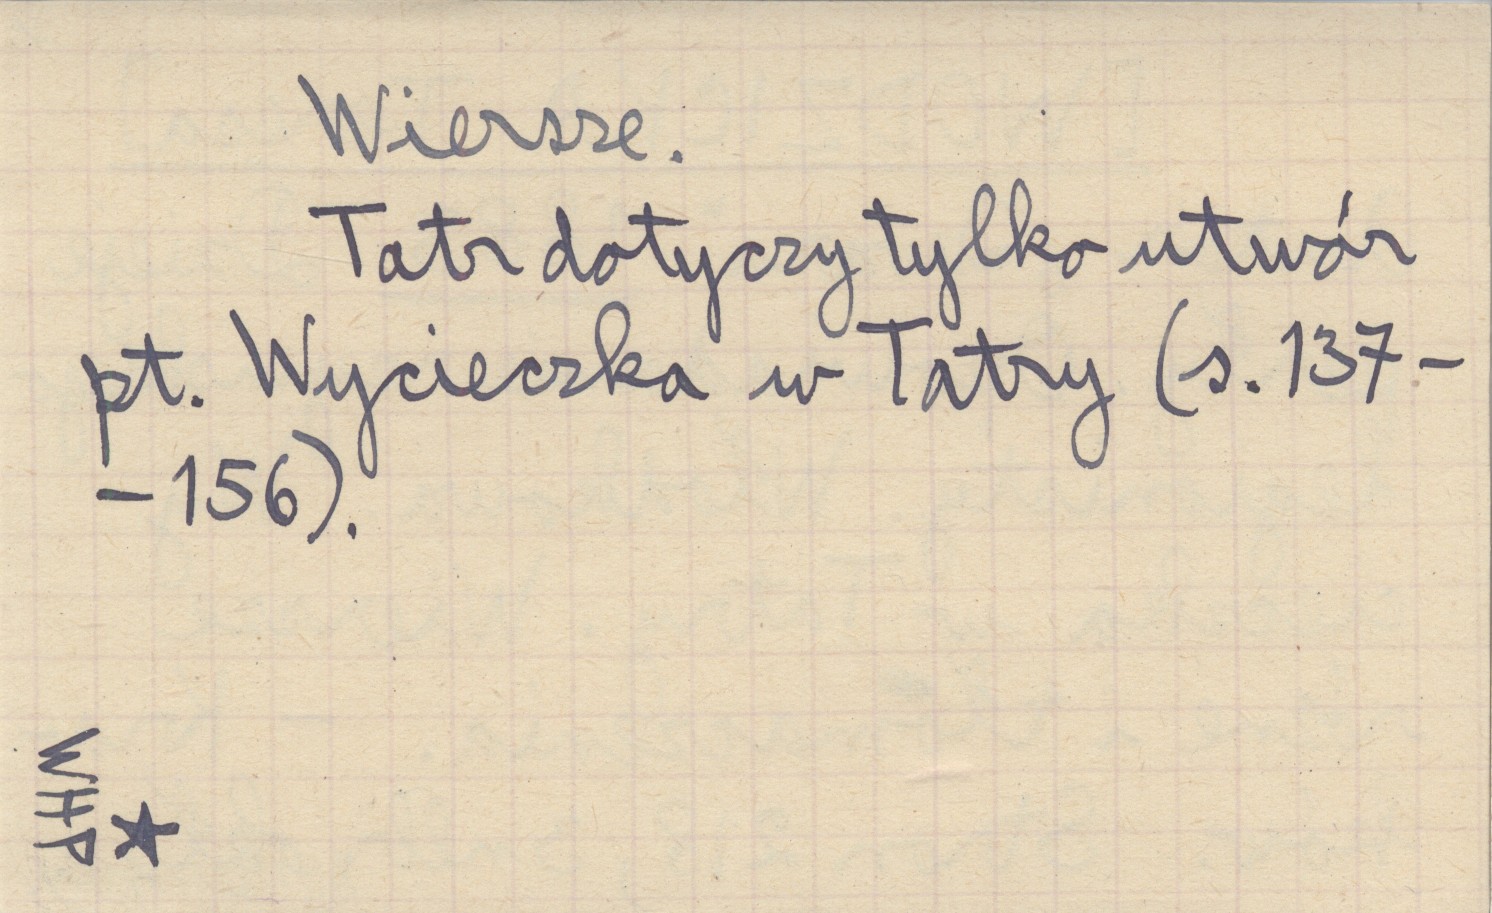 Wiersze.
Tatr dotyczy tylko utwór
pt. Wycieczka w Tatry (s. 137-
-156).
WHP